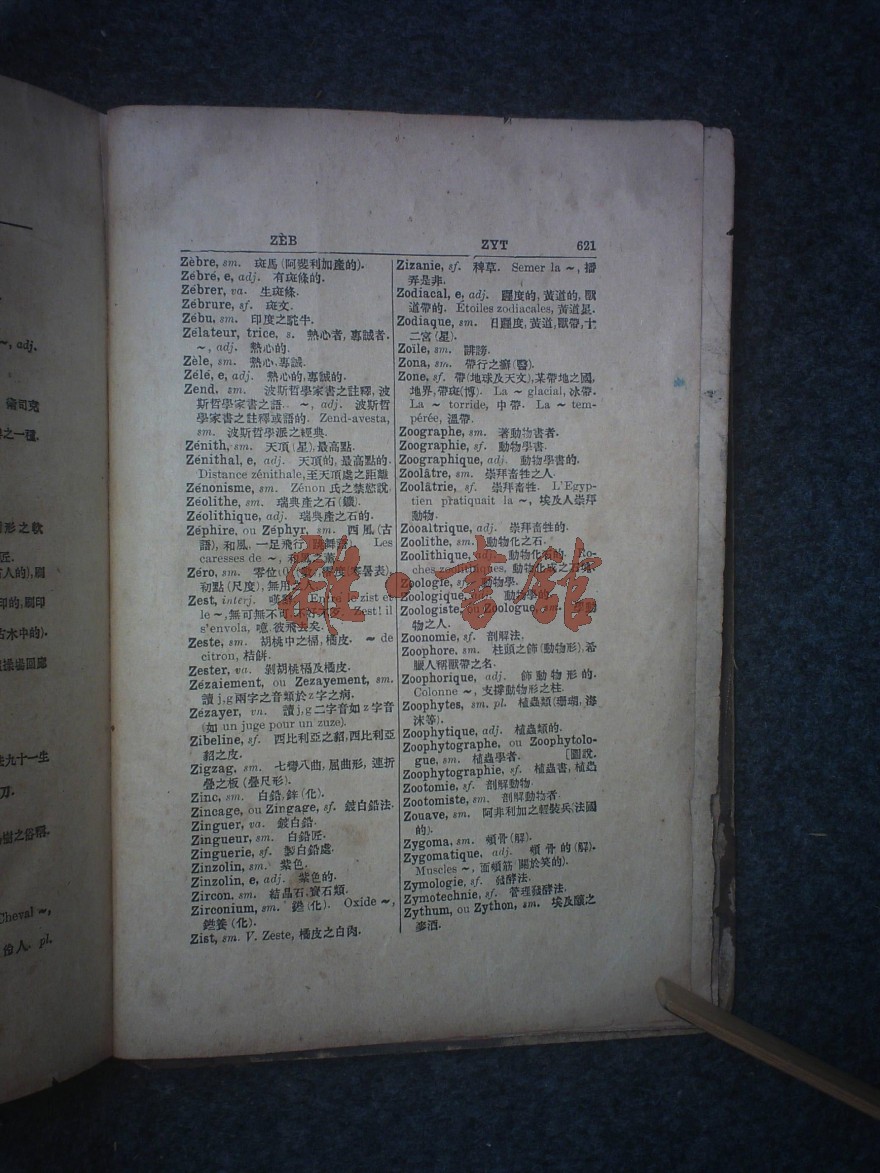 ZÈB
ZYT
621
Zèbre, sm. 斑馬(阿斐利加產的).
Zébré, e, adj. 有斑條的.
Zébrer, va. 生斑條.
Zébrure, sf. 斑文.
Zébu, sm. 印度之駝牛.
Zélateur, trice, s. 熱心者, 專誠者.
~, adj. 熱心的.
Zèle, sm. 熱心, 專誠.
Zélé, e, adj. 熱心的, 專誠的.
Zend, sm. 波斯哲學家書之註釋, 波
斯哲學家書之語. ~, adj. 波斯哲
學家書之註釋或語的. Zend-avesta,
sm. 波斯哲學派之經典.
Zénith, sm. 天頂(星), 最高點.
Zénithal, e, adj. 天頂的, 最高點的.
Distance zénithale, 至天頂處之距離
Zénonisme, sm. Zénon 氏之禁慾說.
Zéolithe, sm. 瑞典產之石(鑛).
Zéolithique, adj. 瑞典產之石的.
Zéphire, ou Zéphyr, sm. 西風(古
語), 和風, 一足飛行(跳舞 Les
caresses de ~, 和風之
Zéro, sm. 零位( 度(寒暑表),
初點(尺度), 無用之人.
Zest, interj. Entre le zist et
le ~, 無可無不可, 不好不歹. Zest! il
s'envola, 噫, 彼飛去矣.
Zeste, sm. 胡桃中之槅, 橘皮. ~ de
citron, 桔餅.
Zester, va. 剝胡桃槅及橘皮.
Zézaiement, ou Zezayement, sm.
讀 j, g 兩字之音類於 z 字之病.
Zézayer, vn. 讀 j, g 二字音如 z 字音
(如 un juge pour un zuze).
Zibeline, sf. 西比利亞之貂, 西比利亞
貂之皮.
Zigzag, sm. 七彎八曲, 屈曲形, 連折
疊之板(疊尺形).
Zinc, sm. 白鉛, 鋅(化).
Zincage, ou Zingage, sf. 鍍白鉛法.
Zinguer, va. 鍍白鉛.
Zingueur, sm. 白鉛匠.
Zinguerie, sf. 製白鉛處.
Zinzolin, sm. 紫色.
Zinzolin, e, adj. 紫色的.
Zircon, sm. 結晶石, 寶石類.
Zirconium, sm. 鋯(化). Oxide ~,
鋯養(化).
Zist, sm. V. Zeste, 橘皮之白肉.
Zizanie, sf. 稗草. Semer la ~, 播
弄是非.
Zodiacal, e, adj. 躔度的, 黃道的, 獸
道帶的. Étoiles zodiacales, 黃道星.
Zodiaque, sm. 日躔度, 黃道, 獸帶, 十
二宮(星).
Zoïle, sm. 誹謗.
Zona, sm. 帶行之癬(醫).
Zone, sf. 帶(地球及天文), 某帶地之國,
地界, 帶斑(博). La ~ glacial, 冰帶.
La ~ torride, 中帶. La ~ tem-
pérée, 溫帶.
Zoographe, sm. 著動物書者.
Zoographie, sf. 動物學書.
Zoographique, adj. 動物學書的.
Zoolâtre, sm. 崇拜畜牲之人.
Zoolâtrie, sf. 崇拜畜牲. L'Egyp-
tien pratiquait la ~, 埃及人崇拜
動物.
Zooaltrique, adj. 崇拜畜牲的.
Zoolithe, sm. 動物化之石.
Zoolithique, adj. 動物化石的. Ro-
ches zoolithiques, 動物化成之
Zoologie, sf. 動物學.
Zoologique, adj. 動物學的.
Zoologiste, ou Zoologue, sm. 動
物之人.
Zoonomie, sf. 剖解法.
Zoophore, sm. 柱頭之飾(動物形), 希
臘人稱獸帶之名.
Zoophorique, adj. 飾動物形的.
Colonne ~, 支撐動物形之柱.
Zoophytes, sm. pl. 植蟲類(珊瑚, 海
沫等).
Zoophytique, adj. 植蟲類的.
Zoophytographe, ou Zoophytolo-
gue, sm. 植蟲學者. [圖說.
Zoophytographie, sf. 植蟲書, 植蟲
Zootomie, sf. 剖解動物.
Zootomiste, sm. 剖解動物者.
Zouave, sm. 阿非利加之輕裝兵(法國
的).
Zygoma, sm. 頰骨(解).
Zygomatique, adj. 頰骨的(解).
Muscles ~, 面頰筋(關於笑的).
Zymologie, sf. 發酵法.
Zymotechnie, sf. 管理發酵法.
Zythum, ou Zython, sm. 埃及國之
麥酒.
雜·書館